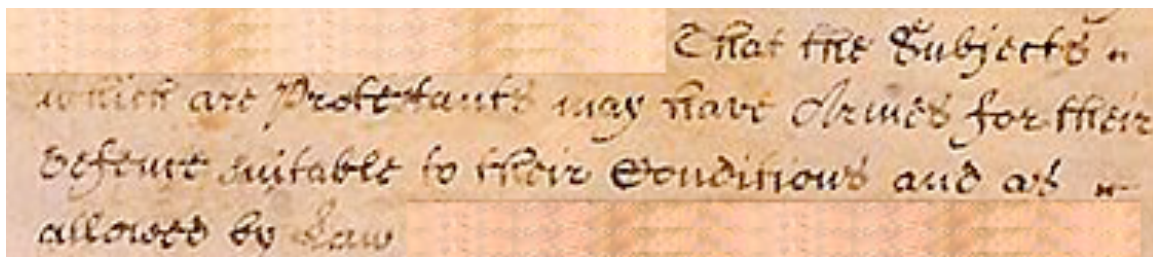 That the Subjects
which are Protestants may have Armes for their
defence suitable to their Conditions and as
allowed by Law